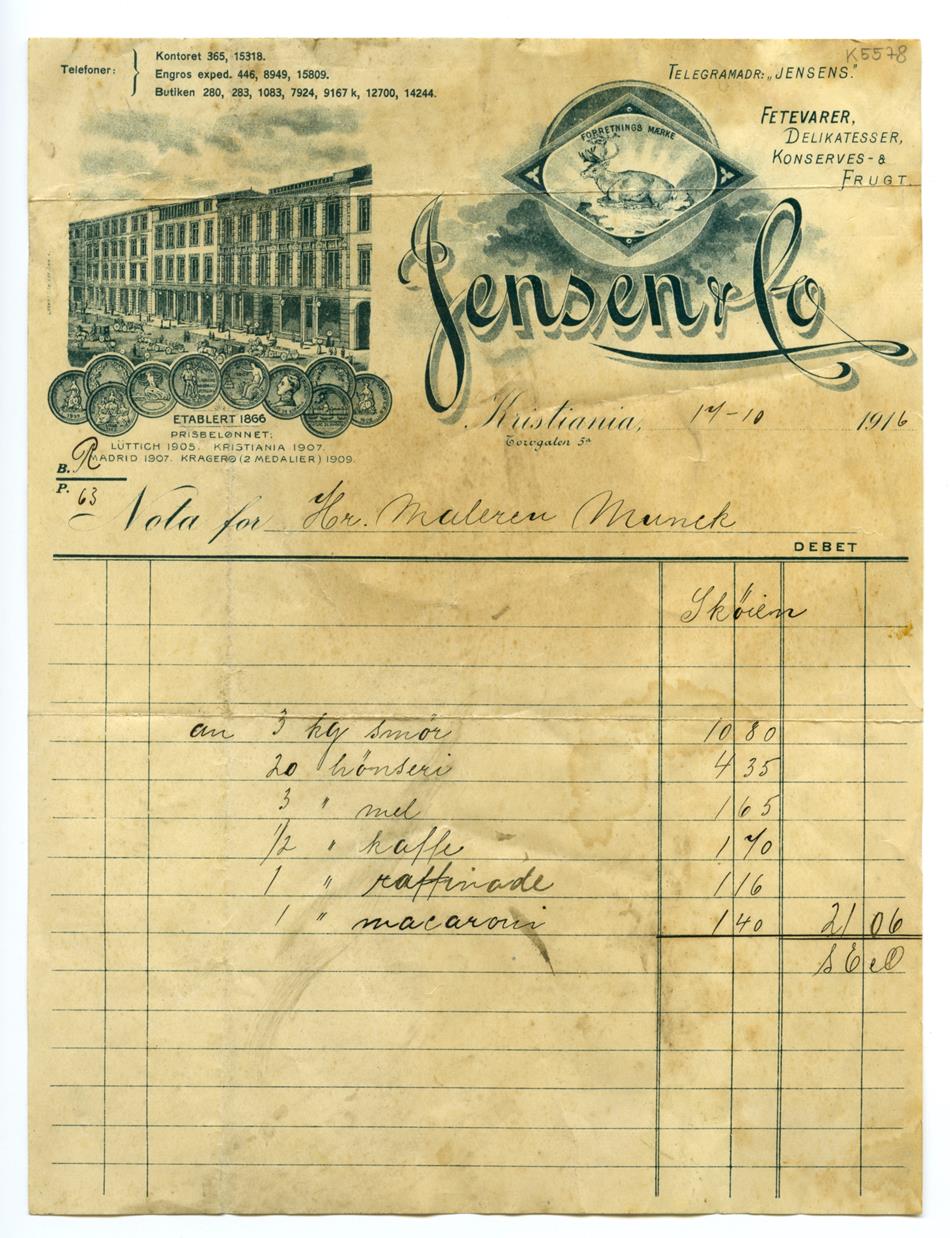 K5578
Telefoner:
Kontoret 365, 15318.
Engros exped. 446, 8949, 15809.
Butiken 280, 283, 1083, 7924, 9167 k, 12700, 14244.
TELEGRAMADR: „JENSENS."
FETEVARER,
DELIKATESSER,
KONSERVES- &
FRUGT.
FORRETNINGS MÆRKE
Jensen & Co
ETABLERT 1866
PRISBELØNNET:
LÜTTICH 1905. KRISTIANIA 1907.
MADRID 1907. KRAGERØ (2 MEDALIER) 1909.
Kristiania, 17-10 1916
Torvgaten 5ᴬ
B. R
P. 63
Nota for Hr. Maleren Munck
DEBET
Sköien
an 3 kg smör 10 80
20 hönseri 4 35
3 " mel 1 65
1/2 " kaffe 1 70
1 " raffinade 1 16
1 " macaroni 1 40 21 06
S E eO